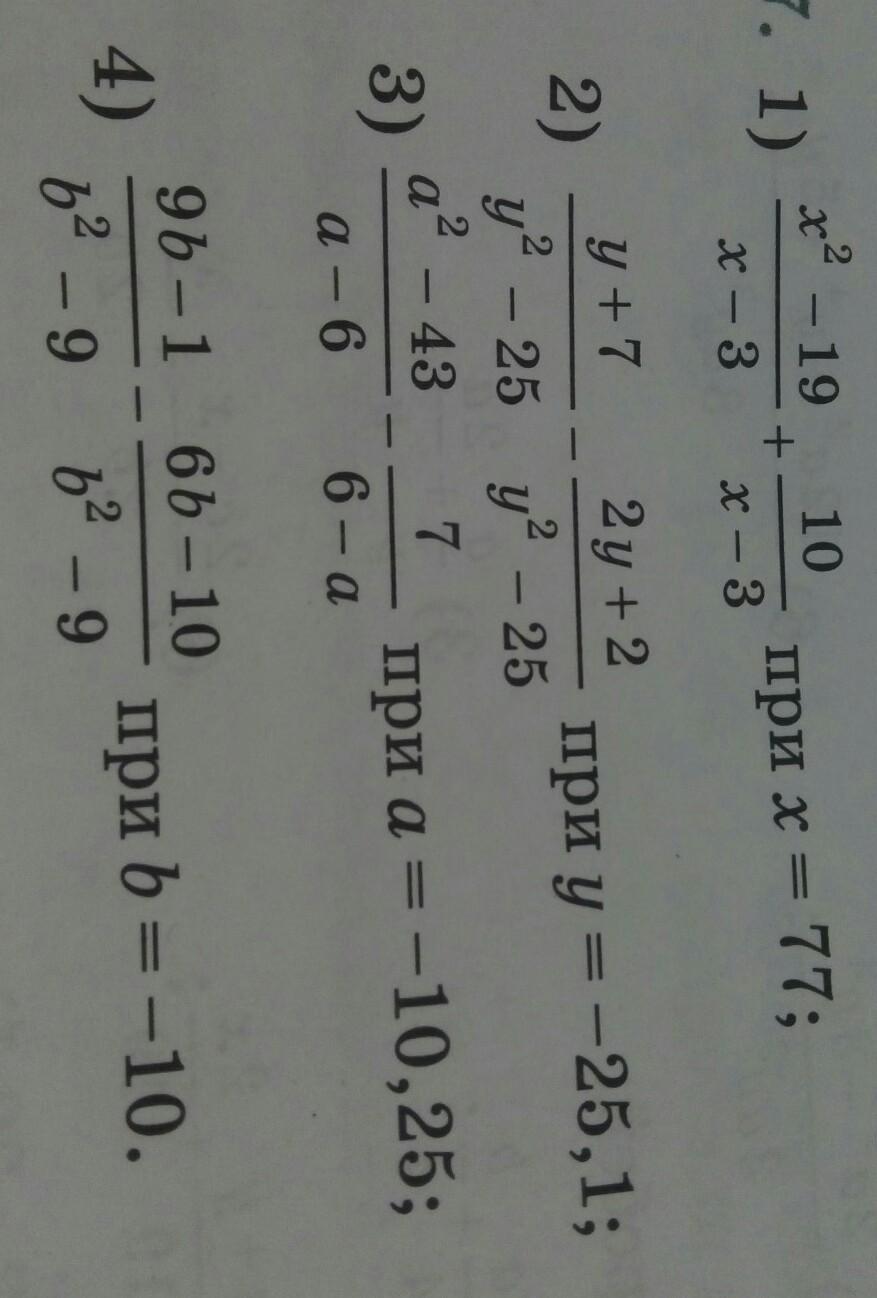 7. 1) \frac{x^2 - 19}{x - 3} + \frac{10}{x - 3} при x = 77;
2) \frac{y + 7}{y^2 - 25} - \frac{2y + 2}{y^2 - 25} при y = -25,1;
3) \frac{a^2 - 43}{a - 6} - \frac{7}{6 - a} при a = -10,25;
4) \frac{9b - 1}{b^2 - 9} - \frac{6b - 10}{b^2 - 9} при b = -10.